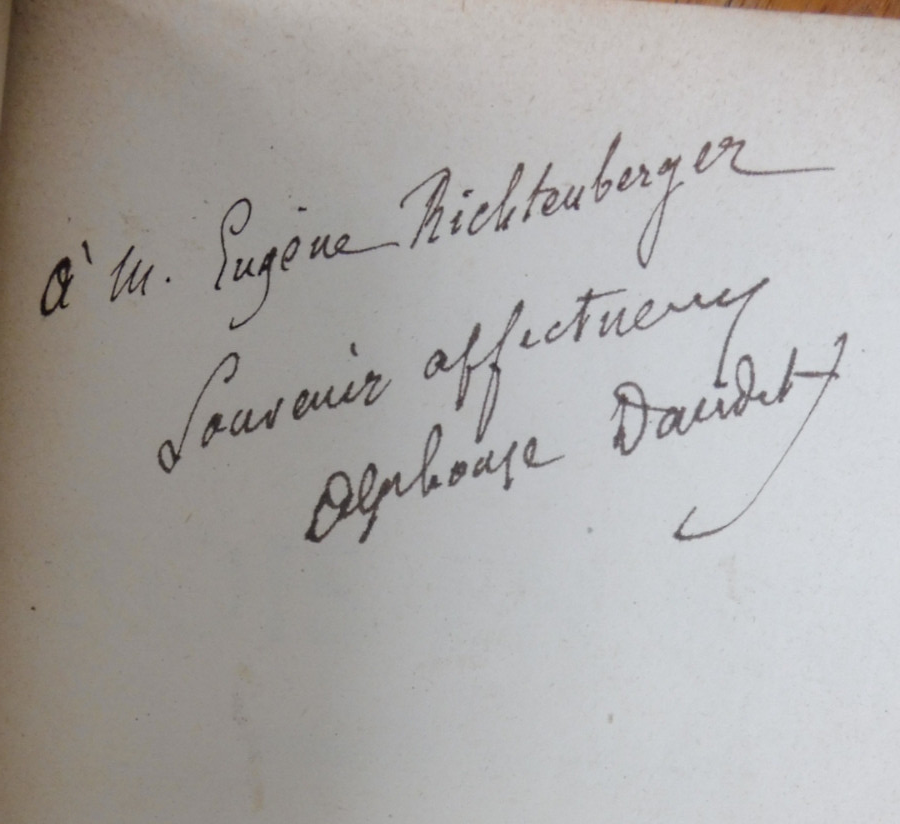 à M. Eugène Richtenberger
Souvenir affectueux
Alphonse Daudet